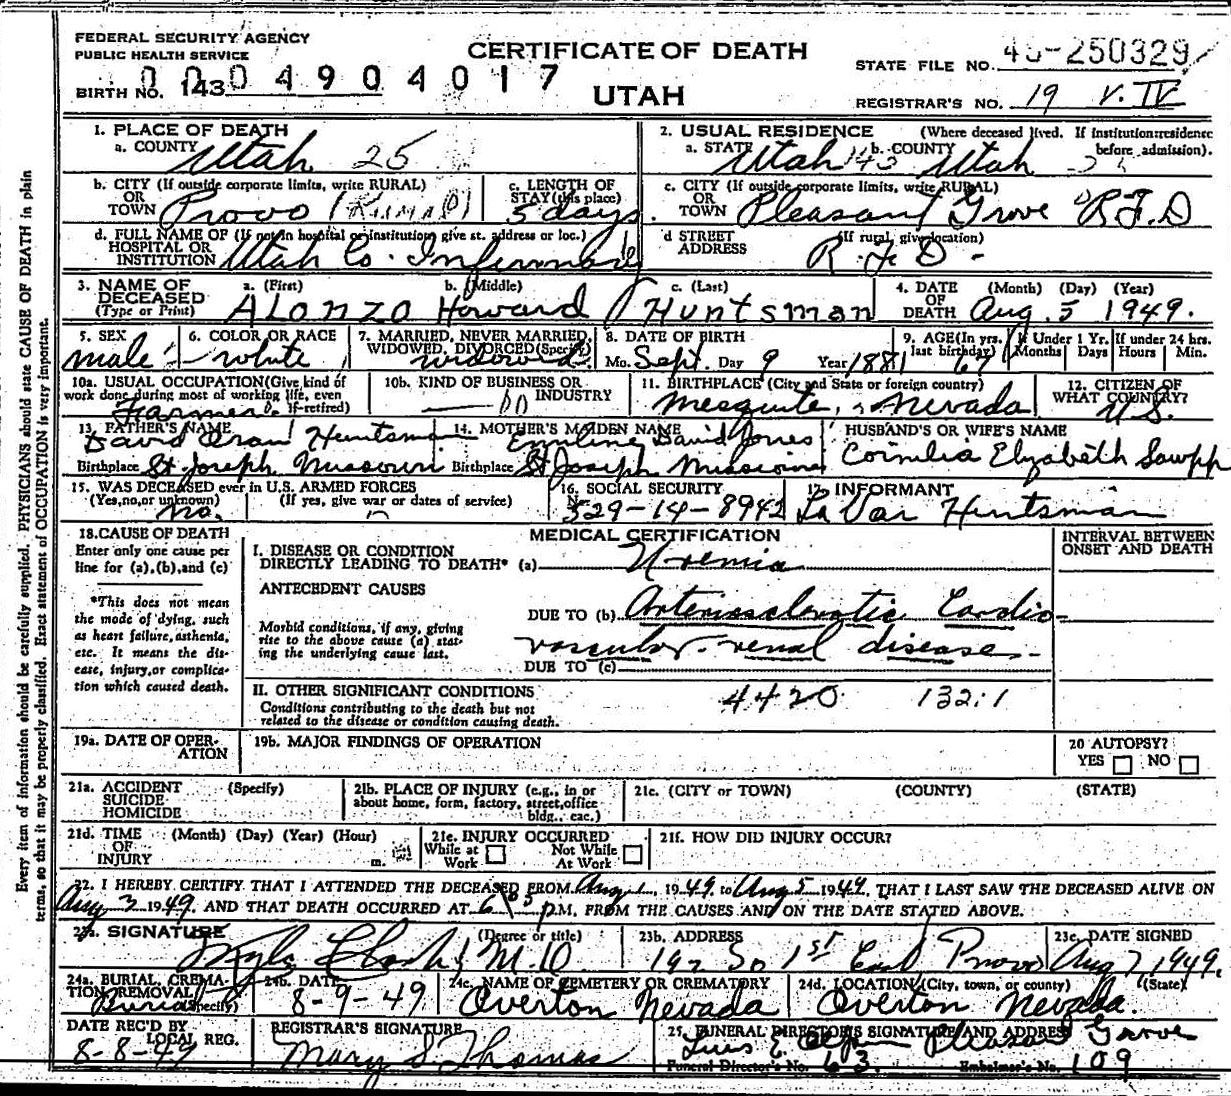 FEDERAL SECURITY AGENCY
PUBLIC HEALTH SERVICE
CERTIFICATE OF DEATH
UTAH
0004904017
BIRTH NO. 143
STATE FILE NO. 250329
REGISTRAR'S NO. 19 V. IV
1. PLACE OF DEATH
a. COUNTY Utah 25
2. USUAL RESIDENCE (Where deceased lived. If institution: residence before admission).
a. STATE Utah b. COUNTY Utah
b. CITY (If outside corporate limits, write RURAL) OR TOWN Provo (Rural)
c. LENGTH OF STAY (this place) 5 days
c. CITY (If outside corporate limits, write RURAL) OR TOWN Pleasant Grove R.F.D
d. FULL NAME OF (If not in hospital or institution, give st. address or loc.) HOSPITAL OR INSTITUTION Utah Co. Infirmary
d STREET ADDRESS (If rural, give location) R.F.D-
3. NAME OF DECEASED (Type or Print)
a. (First) Alonzo b. (Middle) Howard c. (Last) Huntsman
4. DATE OF DEATH (Month) (Day) (Year) Aug. 5 1949.
5. SEX male
6. COLOR OR RACE white
7. MARRIED, NEVER MARRIED, WIDOWED, DIVORCED (Specify) widowed
8. DATE OF BIRTH Mo. Sept. Day 9 Year 1881
9. AGE (In yrs. last birthday) 67
If Under 1 Yr. Months Days
If under 24 hrs. Hours Min.
10a. USUAL OCCUPATION (Give kind of work done during most of working life, even if retired) Farmer
10b. KIND OF BUSINESS OR INDUSTRY
11. BIRTHPLACE (City and State or foreign country) Mesquite, Nevada
12. CITIZEN OF WHAT COUNTRY? U.S.
13. FATHER'S NAME David Oran Huntsman
Birthplace St Joseph Missouri
14. MOTHER'S MAIDEN NAME Emiline David Jones
Birthplace St Joseph Missouri
HUSBAND'S OR WIFE'S NAME
Cornilia Elizabeth
15. WAS DECEASED ever in U.S. ARMED FORCES
(Yes, no, or unknown) no. (If yes, give war or dates of service)
16. SOCIAL SECURITY No. 529-14-8942
17. INFORMANT
La Var Huntsman
18. CAUSE OF DEATH
Enter only one cause per line for (a), (b), and (c)
*This does not mean the mode of dying, such as heart failure, asthenia, etc. It means the disease, injury, or complication which caused death.
MEDICAL CERTIFICATION
INTERVAL BETWEEN ONSET AND DEATH
I. DISEASE OR CONDITION DIRECTLY LEADING TO DEATH* (a) Uremia
ANTECEDENT CAUSES
Morbid conditions, if any, giving rise to the above cause (a) stating the underlying cause last.
DUE TO (b) Arteriosclerotic Cardio-
vascular-renal disease-
DUE TO (c)
II. OTHER SIGNIFICANT CONDITIONS
Conditions contributing to the death but not related to the disease or condition causing death.
4420 132.1
19a. DATE OF OPERATION
19b. MAJOR FINDINGS OF OPERATION
20 AUTOPSY?
YES NO
21a. ACCIDENT SUICIDE HOMICIDE (Specify)
21b. PLACE OF INJURY (e.g., in or about home, form, factory, street, office bldg., eac.)
21c. (CITY or TOWN) (COUNTY) (STATE)
21d. TIME OF INJURY (Month) (Day) (Year) (Hour) m.
21e. INJURY OCCURRED
While at Work Not While At Work
21f. HOW DID INJURY OCCUR?
22. I HEREBY CERTIFY THAT I ATTENDED THE DECEASED FROM Aug 1, 1949 to Aug 5 1949, THAT I LAST SAW THE DECEASED ALIVE ON
Aug 3 1949, AND THAT DEATH OCCURRED AT P.M. FROM THE CAUSES AND ON THE DATE STATED ABOVE.
23a. SIGNATURE (Degree or title) M.D
23b. ADDRESS
192 So 1st East Provo
23c. DATE SIGNED
Aug 7, 1949.
24a. BURIAL, CREMATION, REMOVAL (Specify) Burial
24b. DATE
8-9-49
24c. NAME OF CEMETERY OR CREMATORY
Overton Nevada
24d. LOCATION (City, town, or county) (State)
Overton Nevada.
DATE REC'D BY LOCAL REG.
8-8-49
REGISTRAR'S SIGNATURE
Mary S Thomas
25. FUNERAL DIRECTOR'S SIGNATURE AND ADDRESS
Pleasant Grove
Funeral Director's No. 63. Embalmer's No. 109
Every item of information should be carefully supplied. PHYSICIANS should state CAUSE OF DEATH in plain
terms, so that it may be properly classified. Exact statement of OCCUPATION is very important.